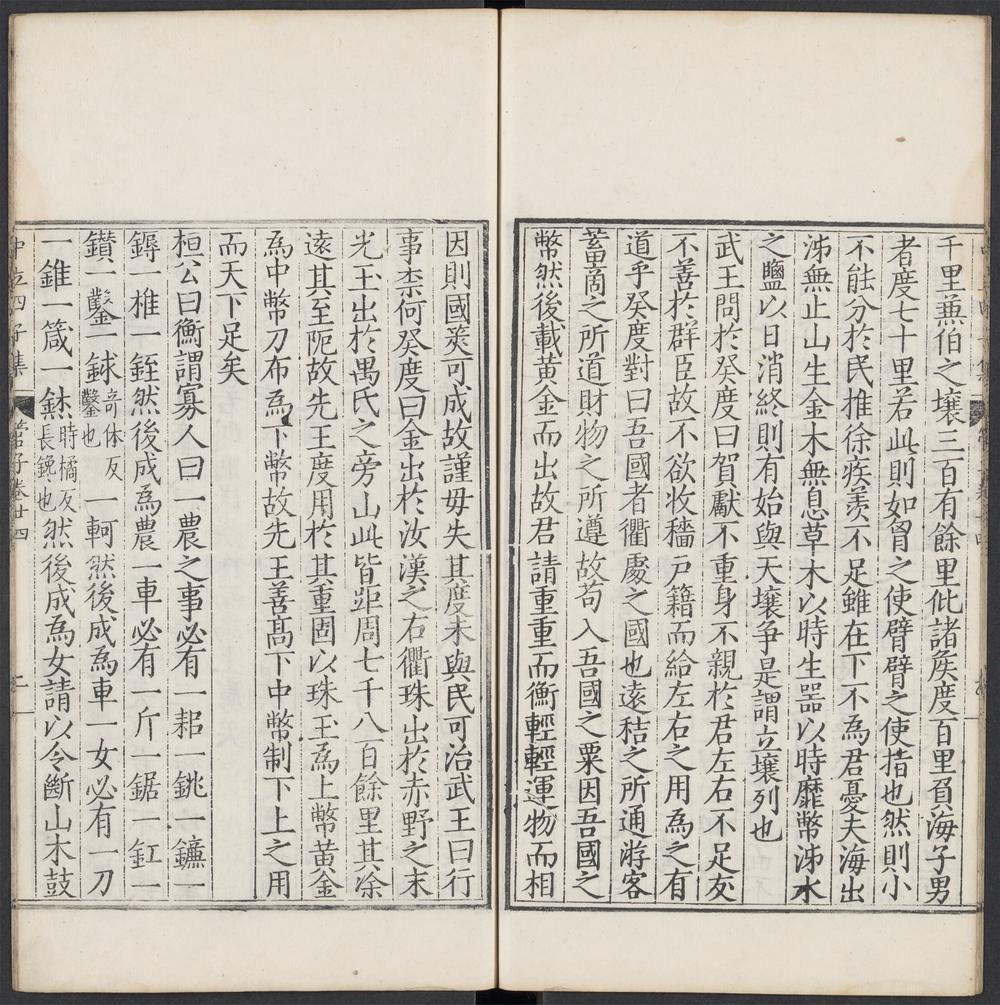 千里兼伯之壤三百有餘里佌諸矦度百里負海子男
者度七十里若此則如胷之使臂臂之使指也然則小
不能分於民推徐疾羨不足雖在下不為君憂夫海出
泲無止山生金木無息草木以時生噐以時靡幣泲水
之鹽以日消終則有始與天壤争是謂立壤列也
武王問於癸度曰賀獻不重身不親於君左右不足友
不善於群臣故不欲收穡戸籍而給左右之用為之有
道乎癸度對曰吾國者衢處之國也遠秸之所通游客
蓄啇之所道財物之所遵故苟入吾國之粟因吾國之
幣然後載黄金而出故君請重重而衡輕輕運物而相
因則國筴可成故謹毋失其度未與民可治武王曰行
事柰何癸度曰金出於汝漢之右衢珠出於赤野之末
光玉出於禺氏之旁山此皆距周七千八百餘里其凃
遠其至阨故先王度用於其重固以珠玉為上幣黄金
為中幣刀布為下幣故先王善髙下中幣制下上之用
而天下足矣
桓公曰衡謂寡人曰一農之事必有一耜一銚一鐮一
鎒一椎一銍然後成為農一車必有一斤一鋸一釭一
鑽一鑿一銶竒休反鑿也一軻然後成為車一女必有一刀
一錐一箴一鉥時橘反長鍼也然後成為女請以令斷山木鼓
中立四子集 管子卷廿四